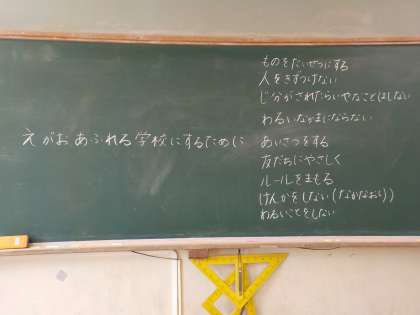 えがおあふれる学校にするために
ものをたいせつにする
人をきずつけない
じ分がされたらいやなことはしない
わるいなかまにならない
あいさつをする
友だちにやさしく
ルールをまもる
けんかをしない(なかなおり)
わるいことをしない